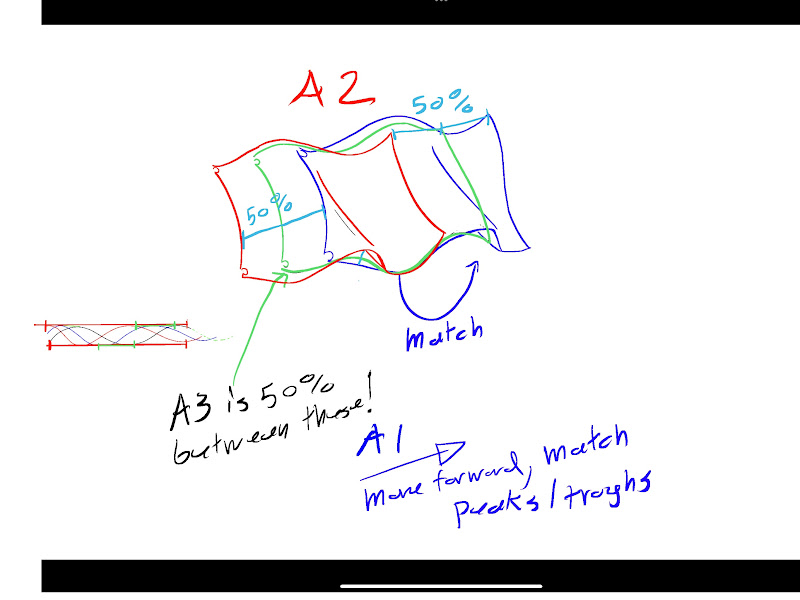 A2
50%
50%
match
A3 is 50%
between these!
A1
move forward, match
peaks/troughs